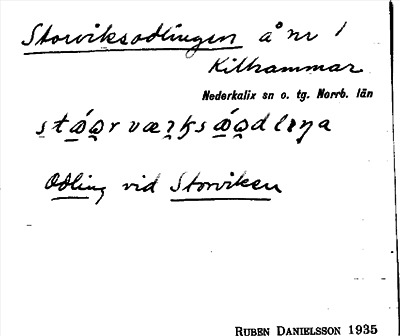 Storviksodlingen å nr 1
Kilhammar
Nederkalix sn o. tg. Norrb. län
Odling vid Storviken
RUBEN DANIELSSON 1935